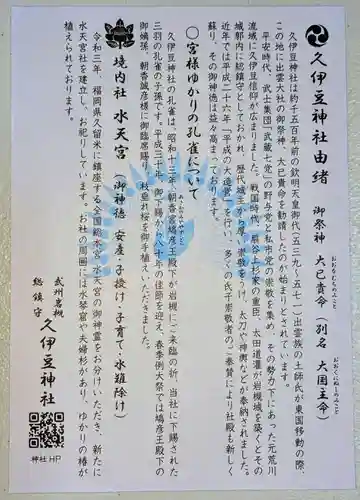 久伊豆神社由緒　御祭神　大己貴命　別名　大国主命）
おおなむちのみこと
おおくにぬしのみこと
久伊豆神社は約千五百年前の欽明天皇御代（五三九～五七一）出雲族の土師氏が東国移動の際、
この地に出雲大社の御祭神、大己貴命を勧請したのが始まりとされています。
平安時代、武士集団「武蔵七党」の野与党と私市党の崇敬を集め、その勢力下にあった元荒川
流域に久伊豆信仰が広まりました。戦国時代、扇谷上杉家の重臣、太田道灌が岩槻城を築くとその
城郭内に総鎮守としておかれ、歴代城主が篤い崇敬をうけ、太刀や神輿などが奉納されました。
近年では平成二十六年「平成の大造営」を行い、多くの氏子崇敬者のご奉賛により社殿も新しく
蘇り、その御神徳は益々高まっております。
〇宮様ゆかりの孔雀について
久伊豆神社の孔雀は、昭和十三年、朝香宮鳩彦王殿下が岩槻にご来臨の折、当社に下賜された
三羽の孔雀の子孫です。平成三十年、御下賜から八十年の佳節を迎え、春季例大祭では鳩彦王殿下の
御嫡孫、朝香誠彦様に御臨席賜り、枝垂れ桜を御手植えいただきました。
境内社　水天宮（御神徳　安産・子授け・子育て・水難除け）
令和三年、福岡県久留米に鎮座する全国総本宮水天宮の御神霊をお分けいただき、新たに
水天宮社を建立し、お祀りしています。お社の周囲には水琴窟や夫婦杉があり、ゆかりの椿が
植えられております。
武州岩槻
総鎮守　久伊豆神社
神社HP